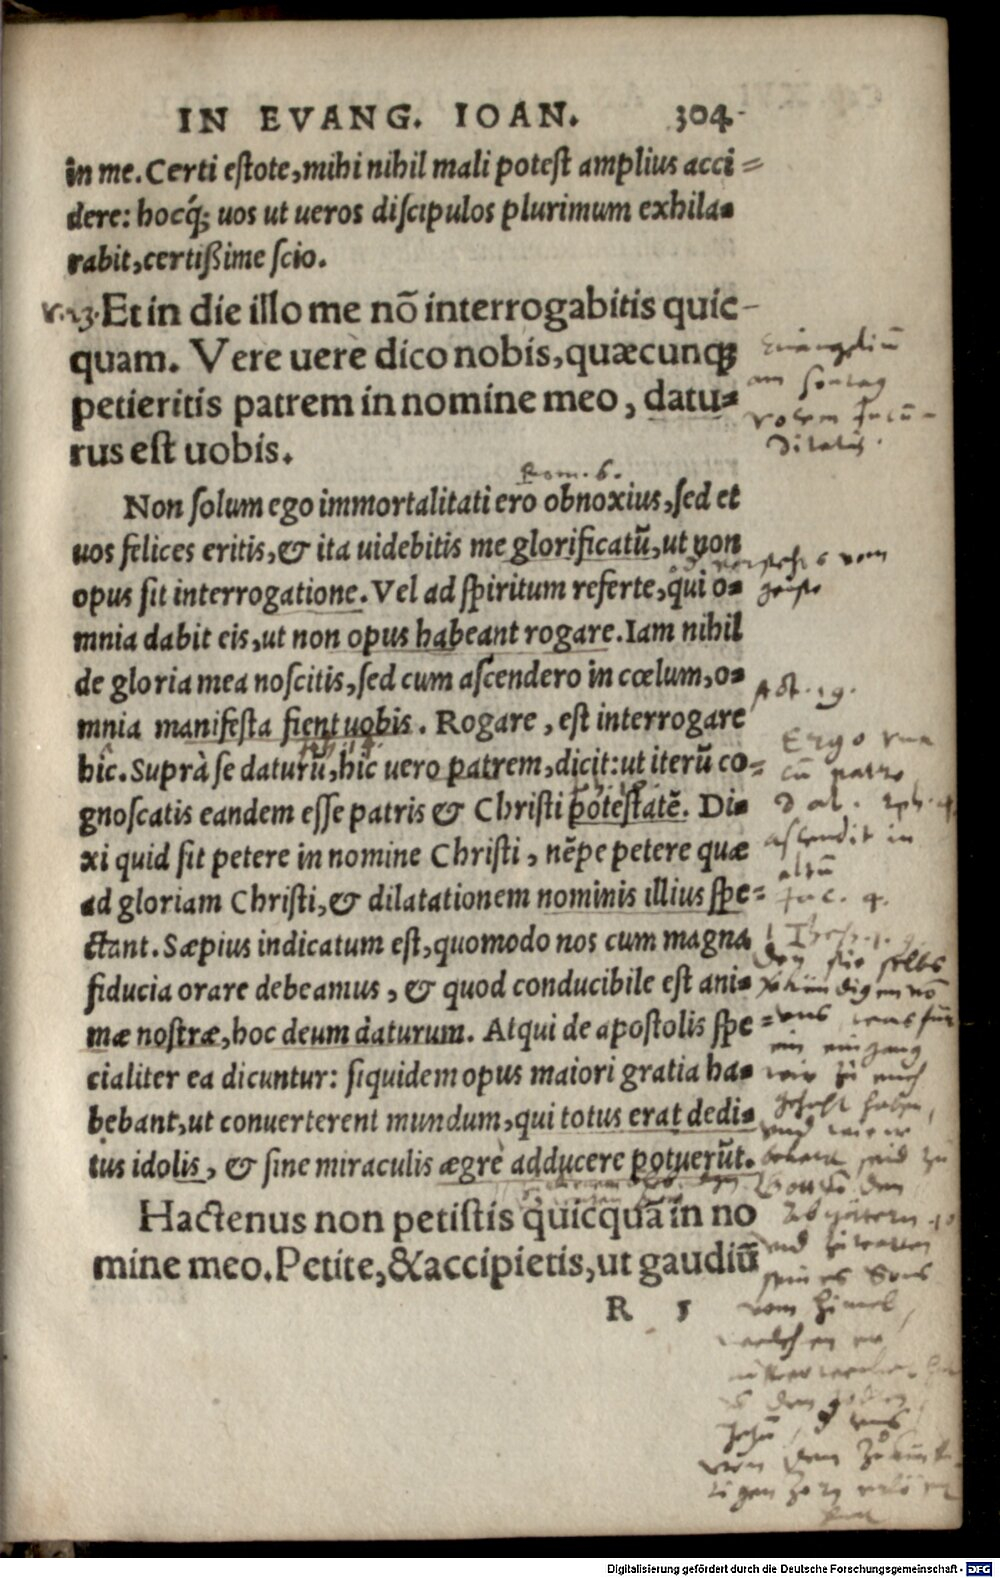 IN EVANG. IOAN. 304.
in me. Certi estote, mihi nihil mali potest amplius acci=
dere: hocq́; uos ut ueros discipulos plurimum exhila=
rabit, certißime scio.
v.23. Et in die illo me nõ interrogabitis quic-
quam. Vere uere dico nobis, quæcunq;
petieritis patrem in nomine meo, datu=
rus est uobis.
Rom. 6.
Non solum ego immortalitati ero obnoxius, sed et
uos felices eritis, & ita uidebitis me glorificatũ, ut non
opus sit interrogatione. Vel ad spiritum referte, qui o=
mnia dabit eis, ut non opus habeant rogare. Iam nihil
de gloria mea noscitis, sed cum ascendero in cœlum, o=
mnia manifesta fient uobis. Rogare, est interrogare
hîc. Suprà se daturũ, hîc uero patrem, dicit: ut iterũ co-
gnoscatis eandem esse patris & Christi potestatẽ. Di=
xi quid sit petere in nomine Christi, nẽpe petere quæ
ad gloriam Christi, & dilatationem nominis illius spe=
ctant. Sæpius indicatum est, quomodo nos cum magna
fiducia orare debeamus, & quod conducibile est ani=
mæ nostræ, hoc deum daturum. Atqui de apostolis spe=
cialiter ea dicuntur: siquidem opus maiori gratia ha=
bebant, ut conuerterent mundum, qui totus erat dedi=
tus idolis, & sine miraculis ægrè adducere potuerũt.
Hactenus non petistis quicquã in no
mine meo. Petite, & accipietis, ut gaudiũ
R 5
Euangeliũ
am sontag
vocem Jucũ-
ditatis.
geist
Act. 19.
Ergo
cũ patre
ascendit in
altũ
Jac. 4.
1 Thess. 1. 9.
Den sie selbs
ein eingang
wir zu euch
gehabt haben,
Abgöttern
vom himel,
Digitalisierung gefördert durch die Deutsche Forschungsgemeinschaft - DFG